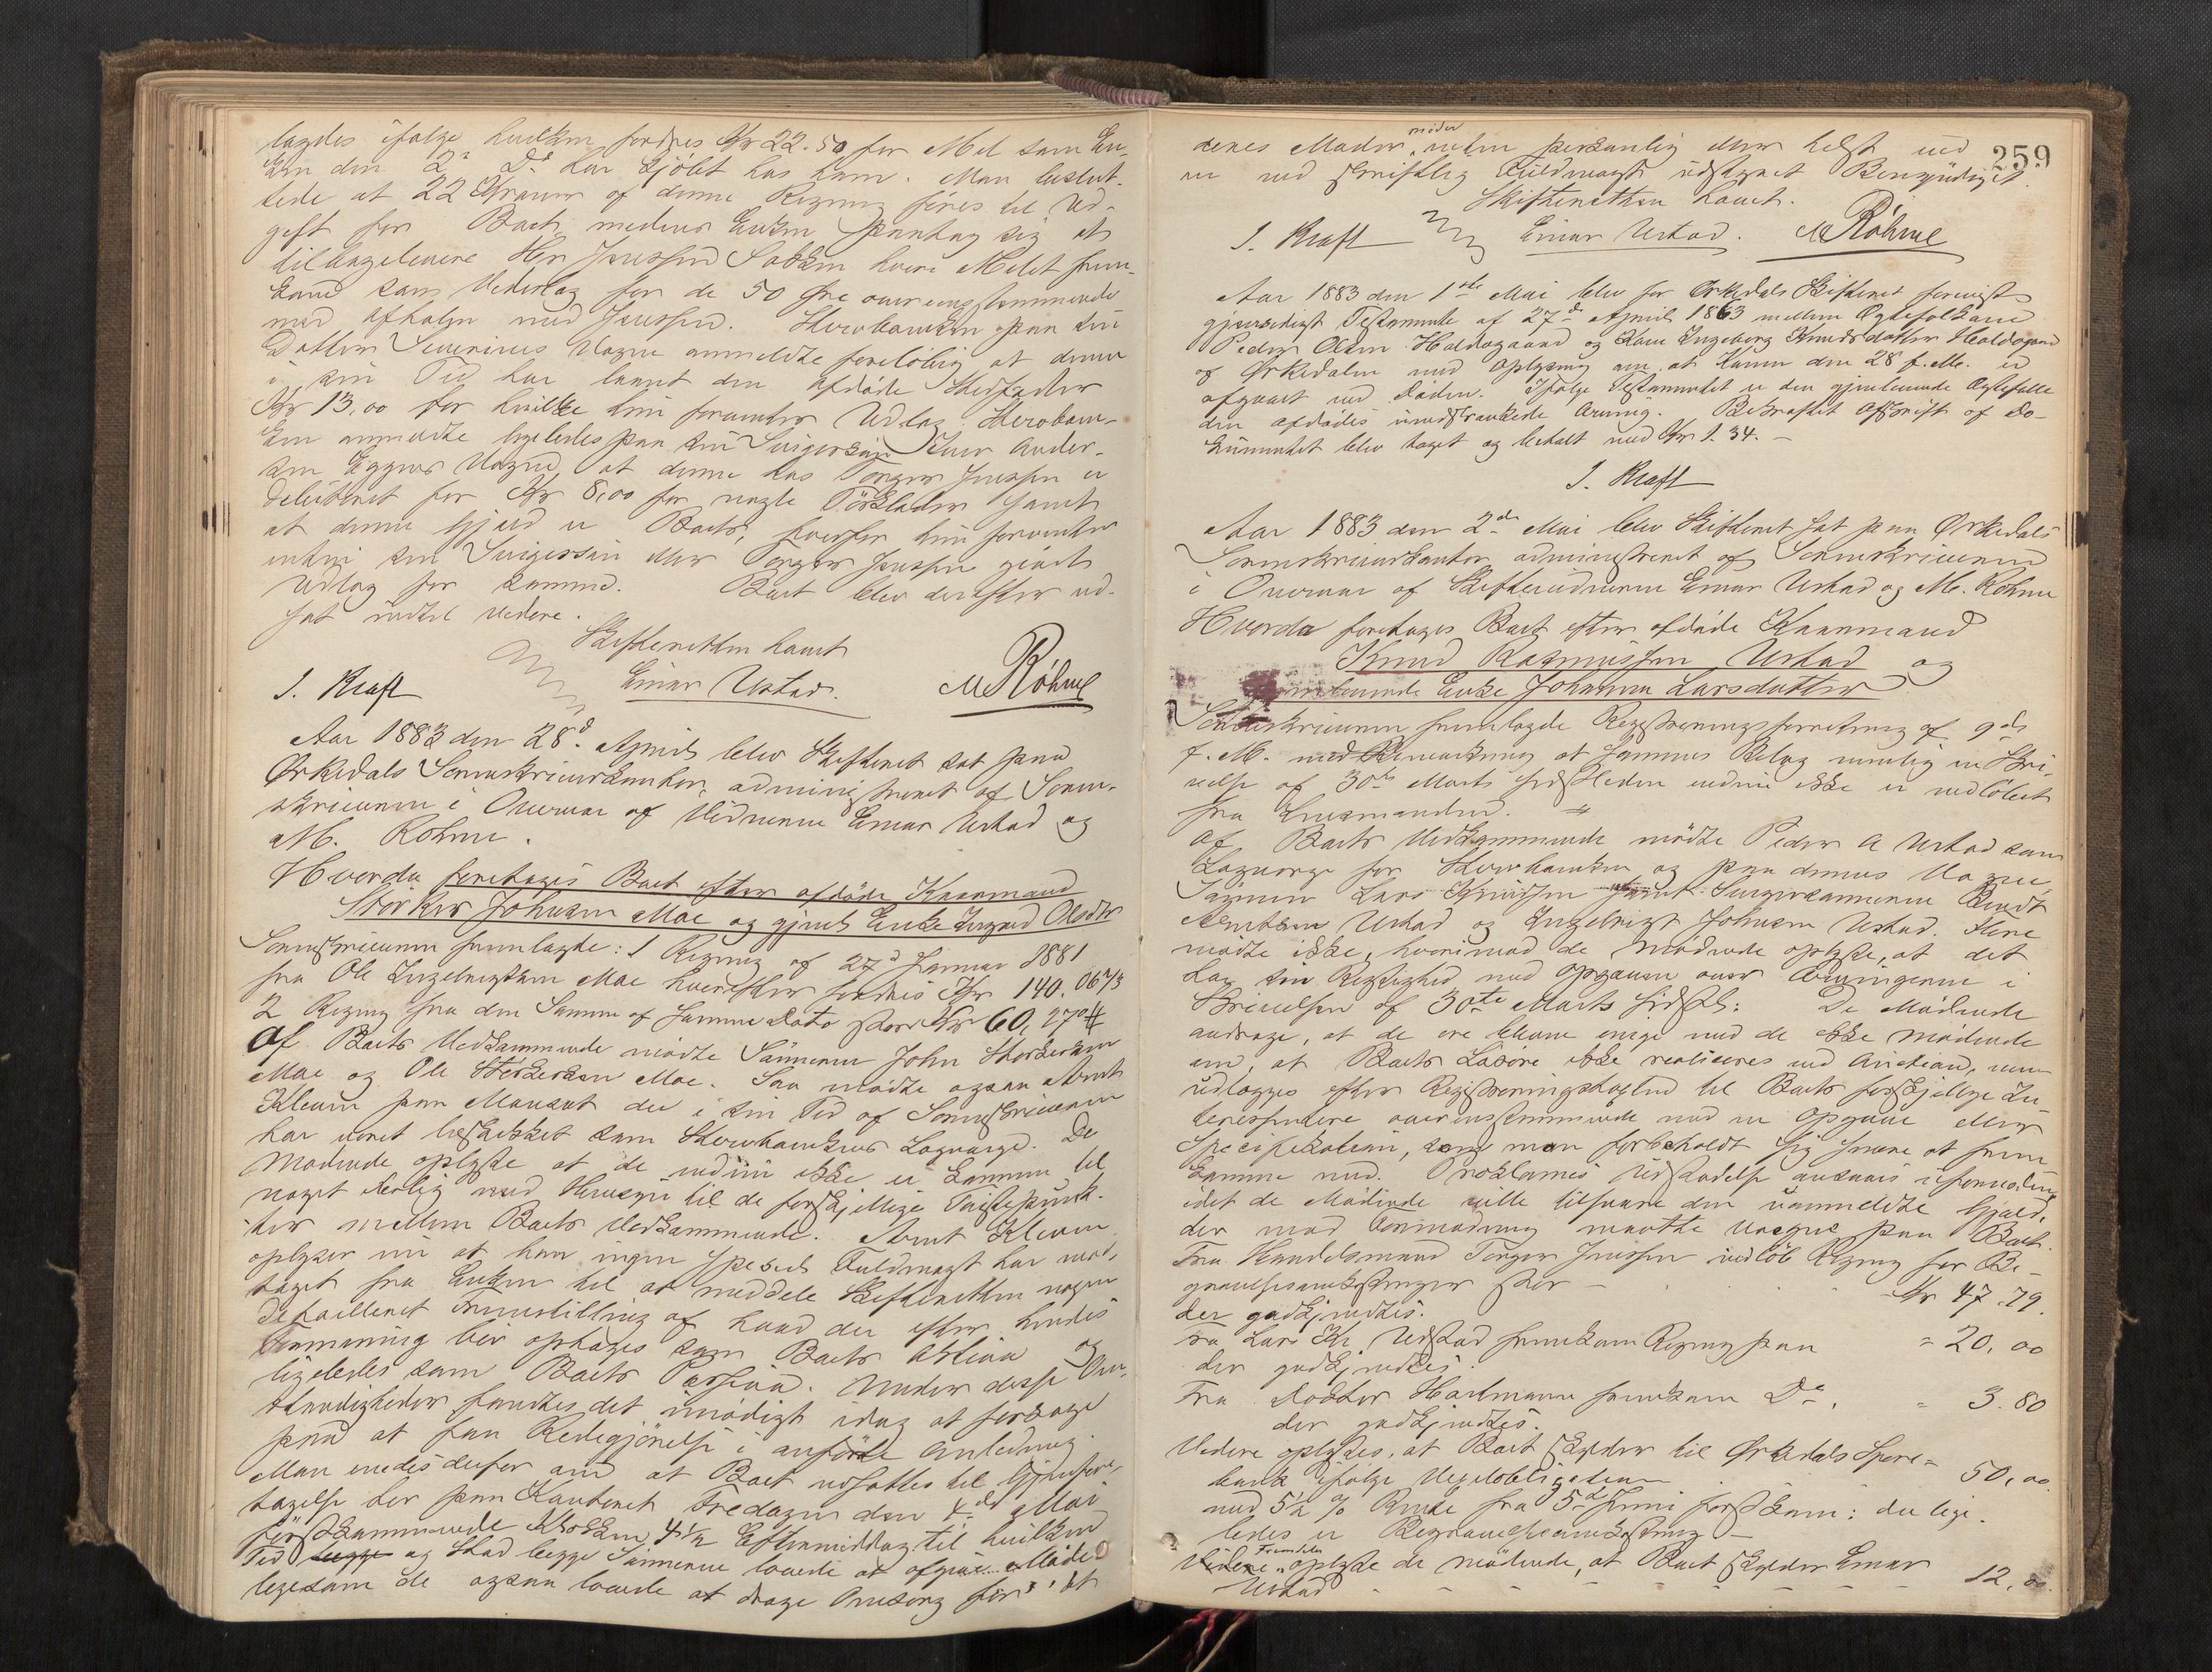 lagdes ifølge hvilken fordres Kr 22.50 for Mel som En-
ken den 2 Ds har kjøbt hos ham. Man beslut-
tede at 22 Kroner af denne Regning føres til Ud-
gift for Boet, medens Enken paatog sig at
tilbagelevere Hr Jenssen Sækken hvori Melet frem-
kom som Vederlag for de 50 Øre overensstemmende
med Aftalen med Jenssen. Stervboenken paa sin
Datters Severines Vegne anmeldte foreløbig at denne
i sin Tid har laant den afdøde Stedfader
Kr 13,00 for hvilke hun forventer Udlæg. Stervboen-
ken anmeldte ligeledes paa sin Svigersøn Iver Ander-
sen Eggens Vegne, at denne hos Torger Jenssen er
debiteret for Kr 8,00 for nogle Tørklæder samt
at denne Gjæld er Boets, hvorfor hun forventer
enten sin Svigersøn eller Torger Jenssen givet
Udlæg for samme. Boet blev derefter ud-
sat indtil videre.
Skifteretten hævet
J. Kraft Einar Ustad. M Röhme
Aar 1883 den 28d. April blev Skifteret sat paa
Ørkedals Sorenskriverkontor, administreret af Soren-
skriveren i Overvær af Vidnerne Einar Ustad og
M. Röhme.
Hvorda foretages Boet efter afdøde Kaarmand
Størker Johnsen Moe og gjenl. Enke Ingrid Olsdtr
Sorenskriveren fremlagde: 1 Regning af 27d Januar 1881
fra Ole Ingebrigtsen Moe hvorefter fordres Kr 140.06 2/3
2 Regning fra den Samme af samme Dato stor Kr 60,27
Af Boets Vedkommende mødte Sønnerne John Størkersen
Moe og Ole Størkersen Moe. Saa mødte ogsaa Arnt
Kleven paa Mandat der i sin Tid af Sorenskriveren
har været beskikket som Stervboenkens Lagværge. De
Mødende oplyste at de endnu ikke er kommen til
noget Forlig med Hensyn til de forskjellige Tvistepunk-
ter mellem Boets Vedkommende. Arnt Kleven
oplyser nu at han ingen speciel Fuldmagt har mod-
taget fra Enken til at meddele Skifteretten nogen
detailleret Fremstilling af hvad der efter hendes
Formening bør optages som Boets Aktiva og
ligeledes som Boets Passiva. Under disse Om-
stændigheder fandtes det unødigt idag at forsøge
paa at faa Redegjørelse i anførte Anledning.
Man enedes derfor om at Boet udsattes til Gjenfore-
tagelse her paa Kontoret Fredagen den 4de Mai
førstkommende Klokken 4 1/2 Eftermiddag til hvilken
Tid begge og Sted begge Sønnerne lovede at afgive Møde
ligesom de ogsaa lovede at drage Omsorg for, at
259
møder
deres Moder enten personlig eller helst ved
en ved skriftlig Fuldmagt udstyret Bemyndiget.
Skifteretten hævet.
J. Kraft Einar Ustad. M Röhme
Aar 1883 den 1ste Mai blev for Ørkedals Skifteret forevist
gjensidigt Testamente af 27d April 1863 mellem Ægtefolkene
Peder Olsen Holdsgaard og Kone Ingeborg Knudsdatter Holdsgaard
af Ørkedalen med Oplysning om at Konen den 28 f.M. er
afgaaet ved Døden. Ifølge Testamentet er den gjenlevende Ægtefælle
den afdødes uindskrænkede Arving. Bekræftet Afskrift af Do-
kumentet blev taget og betalt med Kr 1.34.-
J. Kraft
Aar 1883 den 2den Mai blev Skifteret sat paa Ørkedals
Sorenskriverkontor, administreret af Sorenskriveren
i Overvær af Skiftevidnerne Einar Ustad og M. Röhme
Hvorda foretages Boet efter afdøde Kaarmand
Knud Rasmussen Ustad og
gjenlevende Enke Johanna Larsdatter
Sorenskriveren fremlagde Registreringsforretning af 9de
f.M. med Bemærkning at sammes Bilag nemlig en Skri-
velse af 30te Marts sidstleden endnu ikke er indløbet
fra Lensmanden.
Af Boets Vedkommende mødte Peder A Ustad som
Lagværge for Stervboenken og paa dennes Vegne,
Sønnen Lars Knudsen samt Svigersønnerne Bendt
Arntsen Ustad og Ingebrigt Johnsen Ustad. Flere
mødte ikke, hvorimod de Mødende oplyste, at det
har sin Rigtighed med Opgaven over Arvingerne i
Skrivelsen af 30te Marts sidstl: De Mødende
androge, at de ere blevne enige med de ikke Mødende
om, at Boets Løsøre ikke realiseres ved Auktion, men
udlægges efter Registreringstaxten til Boets forskjellige In-
teressentere overensstemmende med en Opgave eller
Specifikation, som man forbeholdt sig senere at frem-
komme med. Proklamas Udstedelse ansaaes ufornøden
idet de Mødende ville tilsvare den uanmeldte Gjæld,
der mod Formodning maatte udgjøre paa Boet.
Fra Handelsmand Torger Jenssen indløb Regning for Be-
gravelsesomkostninger stor - Kr 47.79.
der godkjendtes.
Fra Lars K. Ustad fremkom Regning paa = 20,00
der godkjendtes.
Fra Doktor Hartmann fremkom Do. " 3.80
der godkjendtes.
Videre oplystes, at Boet skylder til Ørkedals Spare=
bank ifølge Vexelobligation 50,00
med 5 1/2 % Rente fra 5te Juni førstkom: der lige-
ledes er Begravelsesomkostning -
Fremdeles
Videre oplyste de mødende, at Boet skylder Einar
Ustad - - - - - - - 12,00.